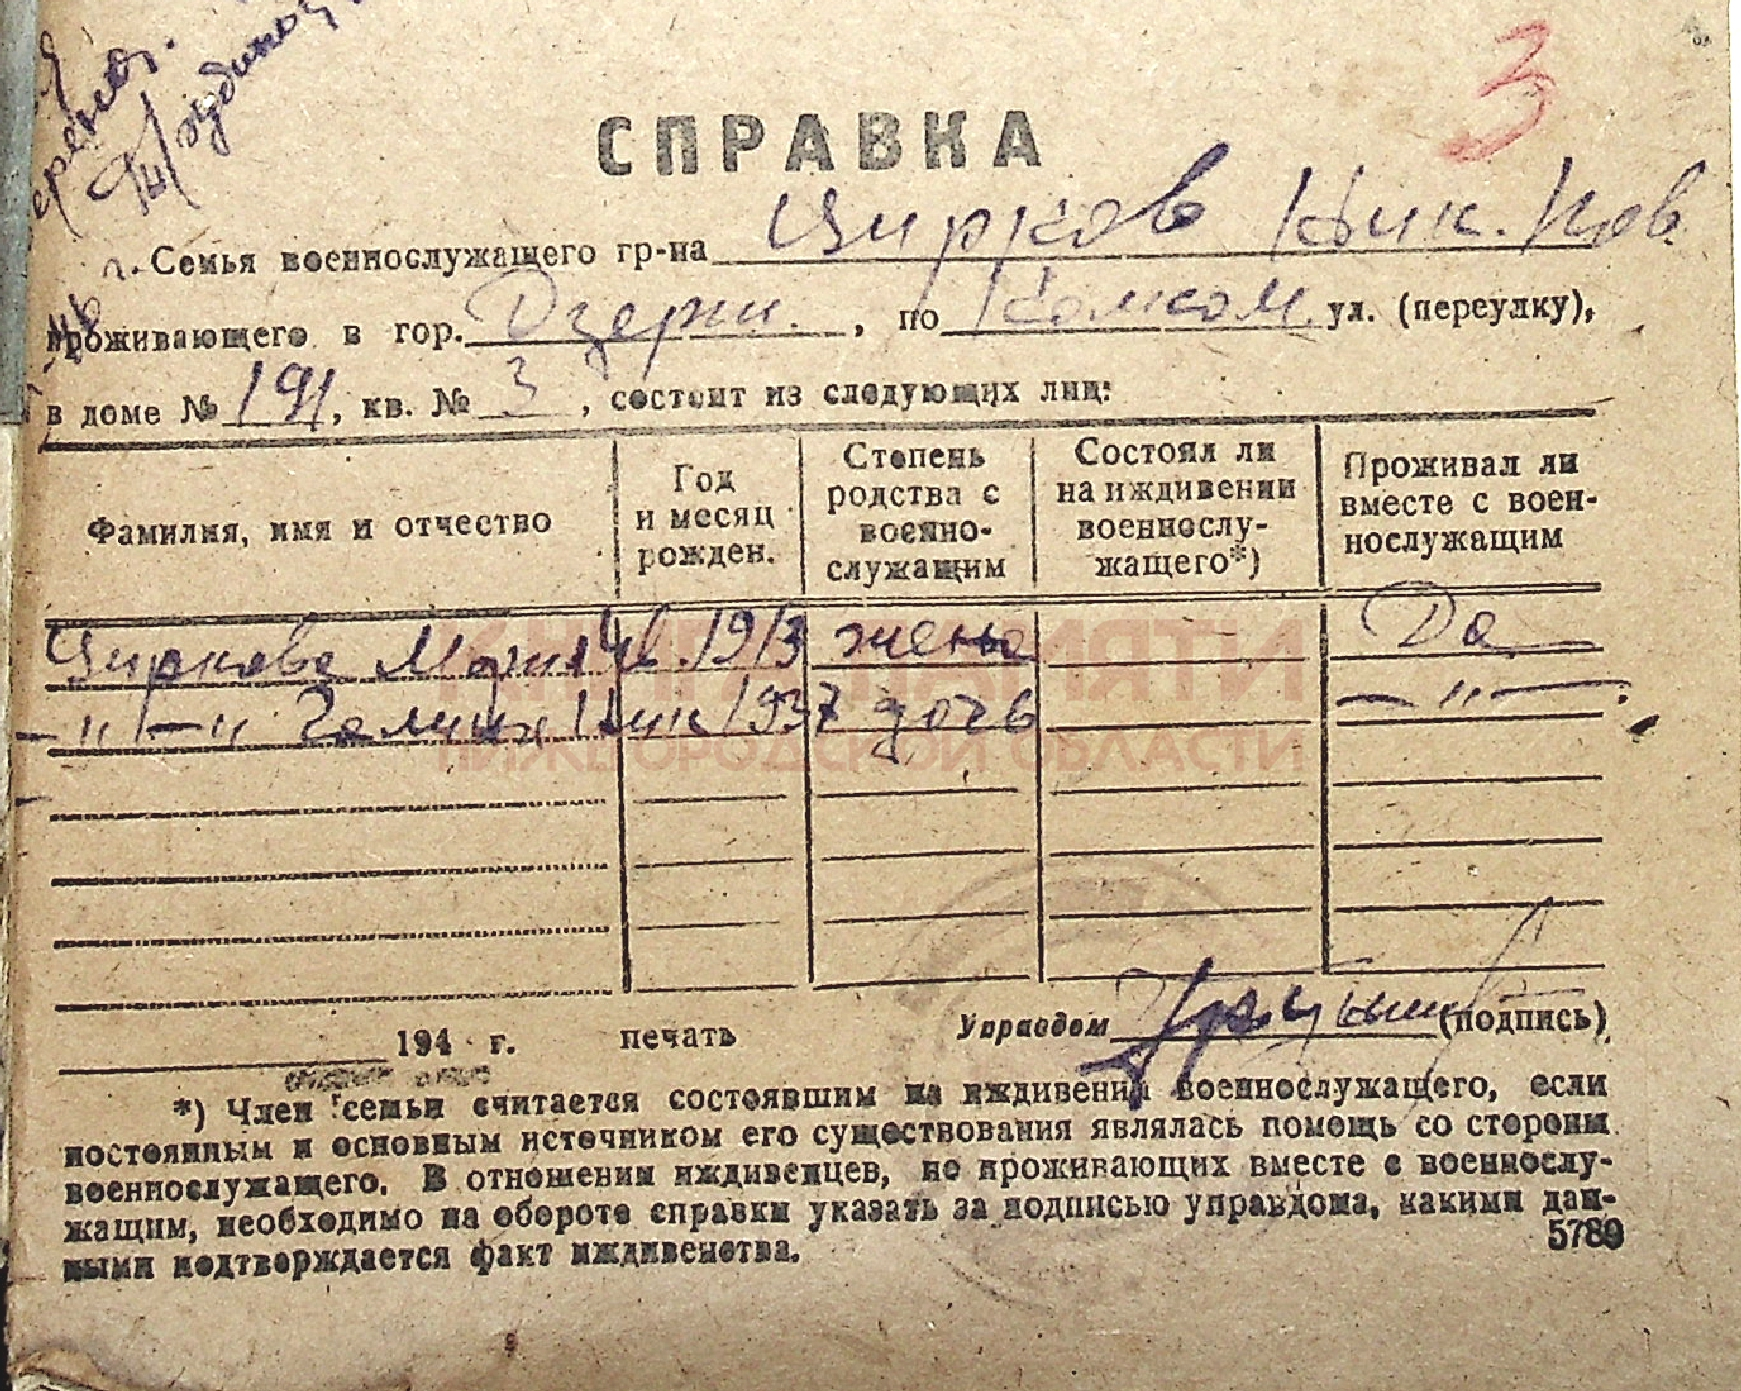 3
СПРАВКА
г. Семья военнослужащего гр-на Цирков Ник. Ив
проживающего в гор. Дзерж. , по Комсом. ул. (переулку),
в доме № 191, кв. № 3 , состоит из следующих лиц:
Фамилия, имя и отчество
Год и месяц рожден.
Степень родства с военно-служащим
Состоял ли на иждивении военнослу-жащего*)
Проживал ли вместе с воен-нослужащим
Циркова Мария Ив. 1913 жена Да
—"— " Галина Ник 1937 дочь —"—
КНИГА ПАМЯТИ
НИЖЕГОРОДСКОЙ ОБЛАСТИ
194 г. печать Управдом (подпись)
*) Член семьи считается состоявшим на иждивении военнослужащего, если
постоянным и основным источником его существования являлась помощь со стороны
военнослужащего. В отношении иждивенцев, не проживающих вместе с военнослу-
жащим, необходимо на обороте справки указать за подписью управдома, какими дан-
ными подтверждается факт иждивенства.
5789